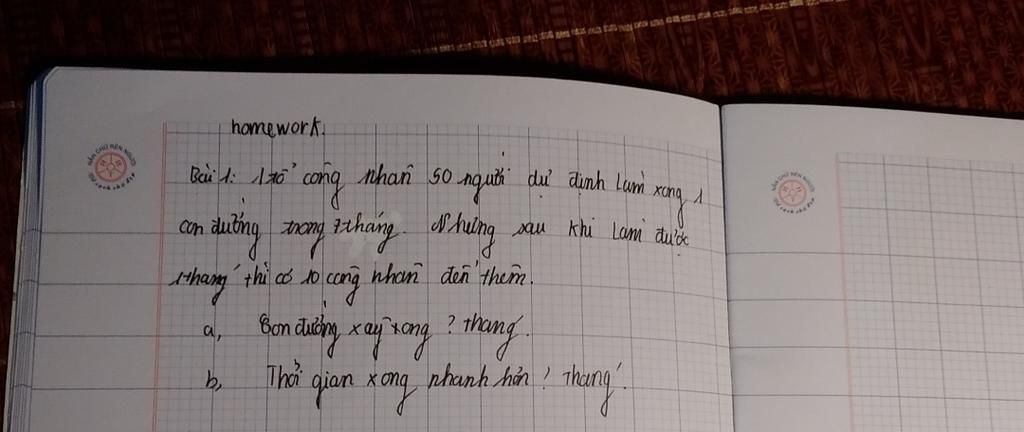 homework.
NẮN CHỮ RÈN NGƯỜI
Vở sạch chữ đẹp
Bài 1: 1 tổ công nhân 50 người dự định làm xong 1
con đường trong 7 tháng. Nhưng sau khi làm được
1 tháng thì có 10 công nhân đến thêm.
a, Con đường xây xong ? tháng.
b, Thời gian xong nhanh hơn ? tháng.